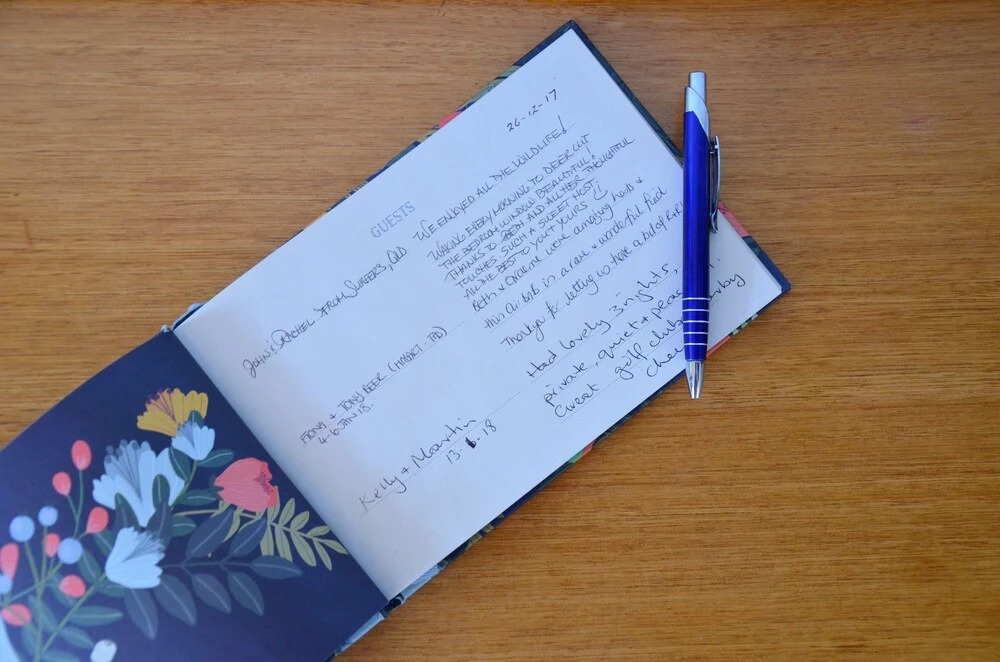 26-12-17
GUESTS
JOHN & RACHEL FROM SURFERS, QLD
WE ENJOYED ALL THE WILDLIFE!
WAKING EVERY MORNING TO DEER OUT
THE BEDROOM WINDOW BEAUTIFUL!
THANKS TO BETH AND ALL HER THOUGHTFUL
TOUCHES SUCH A SWEET HOST.
ALL THE BEST TO YOU + YOURS
FIONA + TONY BEER (HOBART - TAS)
4-6 JAN 18.
Beth & Graeme were amazing hosts &
this air bnb is a rare & wonderful find
Thankyou for letting us have a bit of R&R!
Kelly + Martin
13-6-18
Had lovely 3 nights,
private, quiet + peac
Great golf clubs